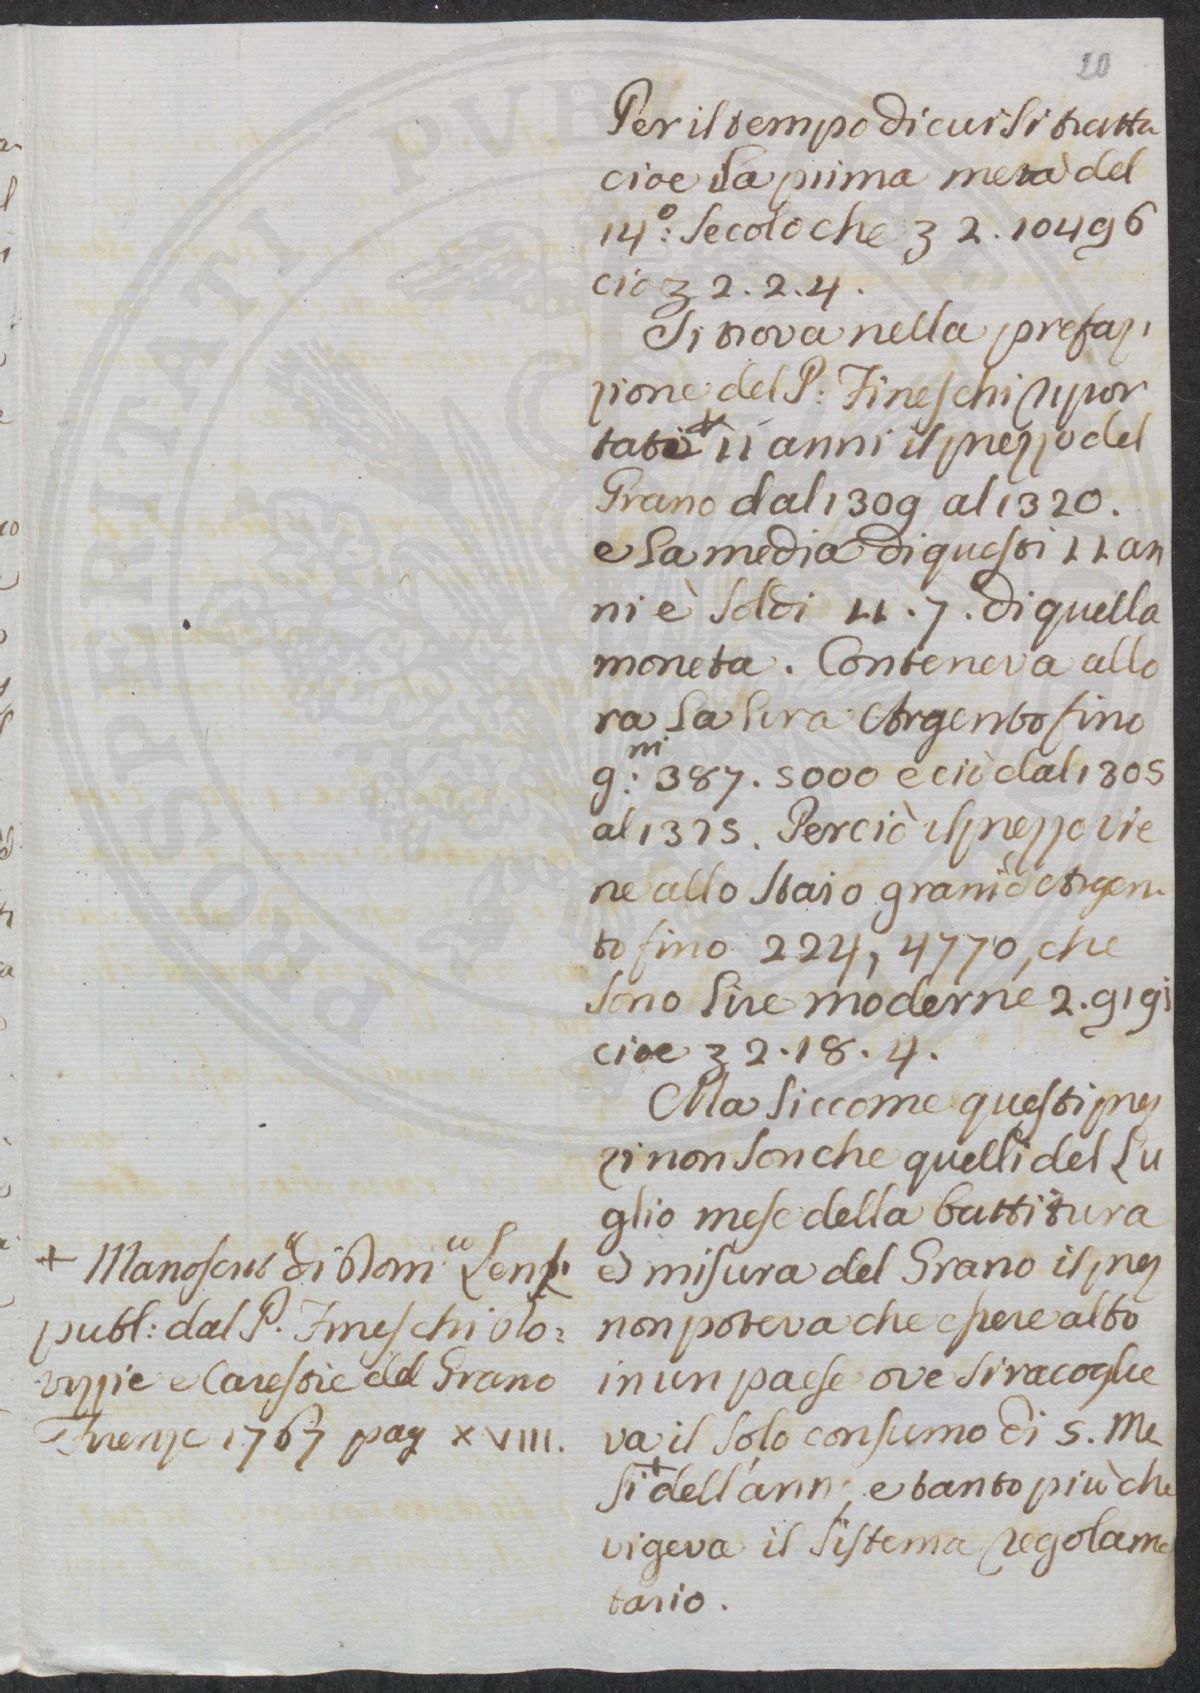 20
Per il tempo di cui si tratta
cioe la prima metà del
14.º secolo che ʒ 2.10496
cio ʒ 2.2.4.
Si trova nella prefaz
zione del P: Fineschi ripor
tati + 11 anni il prezzo del
Grano dal 1309 al 1320.
e la media di questi 11 an
ni è soldi 11.7. di quella
moneta. Conteneva allo
ra la lira Argento fino
g:ni 387.5000 e ciò dal 1305
al 1325. Perciò il prezzo vie
ne allo staio grani d'Argen
to fino 224,4770, che
sono lire moderne 2.9191
cioe ʒ 2.18.4.
Ma siccome questi prez
zi non son che quelli del Lu
glio mese della battitura
e misura del Grano il prez
non poteva che essere alto
in un paese ove si racoglie
va il solo consumo di 5. Me
si + dell'ann, e tanto più che
vigeva il sistema regolame
tario.
+ Manoscrit di Dom Lenz.
publ: dal P. Fineschi Do=
vizzie e Carestie del Grano
Firenze 1767 pag XVIII.
PROSPERITATI PUBLICAE